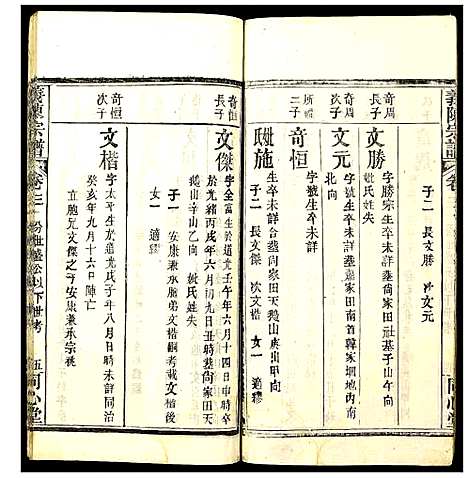 義陳宗譜
卷
同心堂
子二 長文勝 次文元
奇周
長子
文勝
字勝宗生卒未詳葬尚家田社基子山午向
妣氏失
奇周
次子
文元
字號生卒未詳葬尚家田南首韓家堋地丙南
北向
所禮
二子
奇恒
字號生卒未詳
妣施
生卒未詳合葬尚家田天鵝山庚出甲向
子二 長文傑 次文楷 女一 適繆
奇恒
長子
文傑
字全富生於道光壬午年六月十四日申時卒
於光緒丙戌年六月初九日丑時葬尚家田天
鵝山辛山乙向 妣氏失
子一 安康兼承胞弟文楷嗣考載下
女一 適繆
奇恒
次子
文楷
字太平生於道光戊子年八月日時未詳同治
癸亥年九月十六日陣亡
立胞兄文傑之子安康兼承宗祧
義陳宗譜
卷
盛公以下世考
伍
同心堂